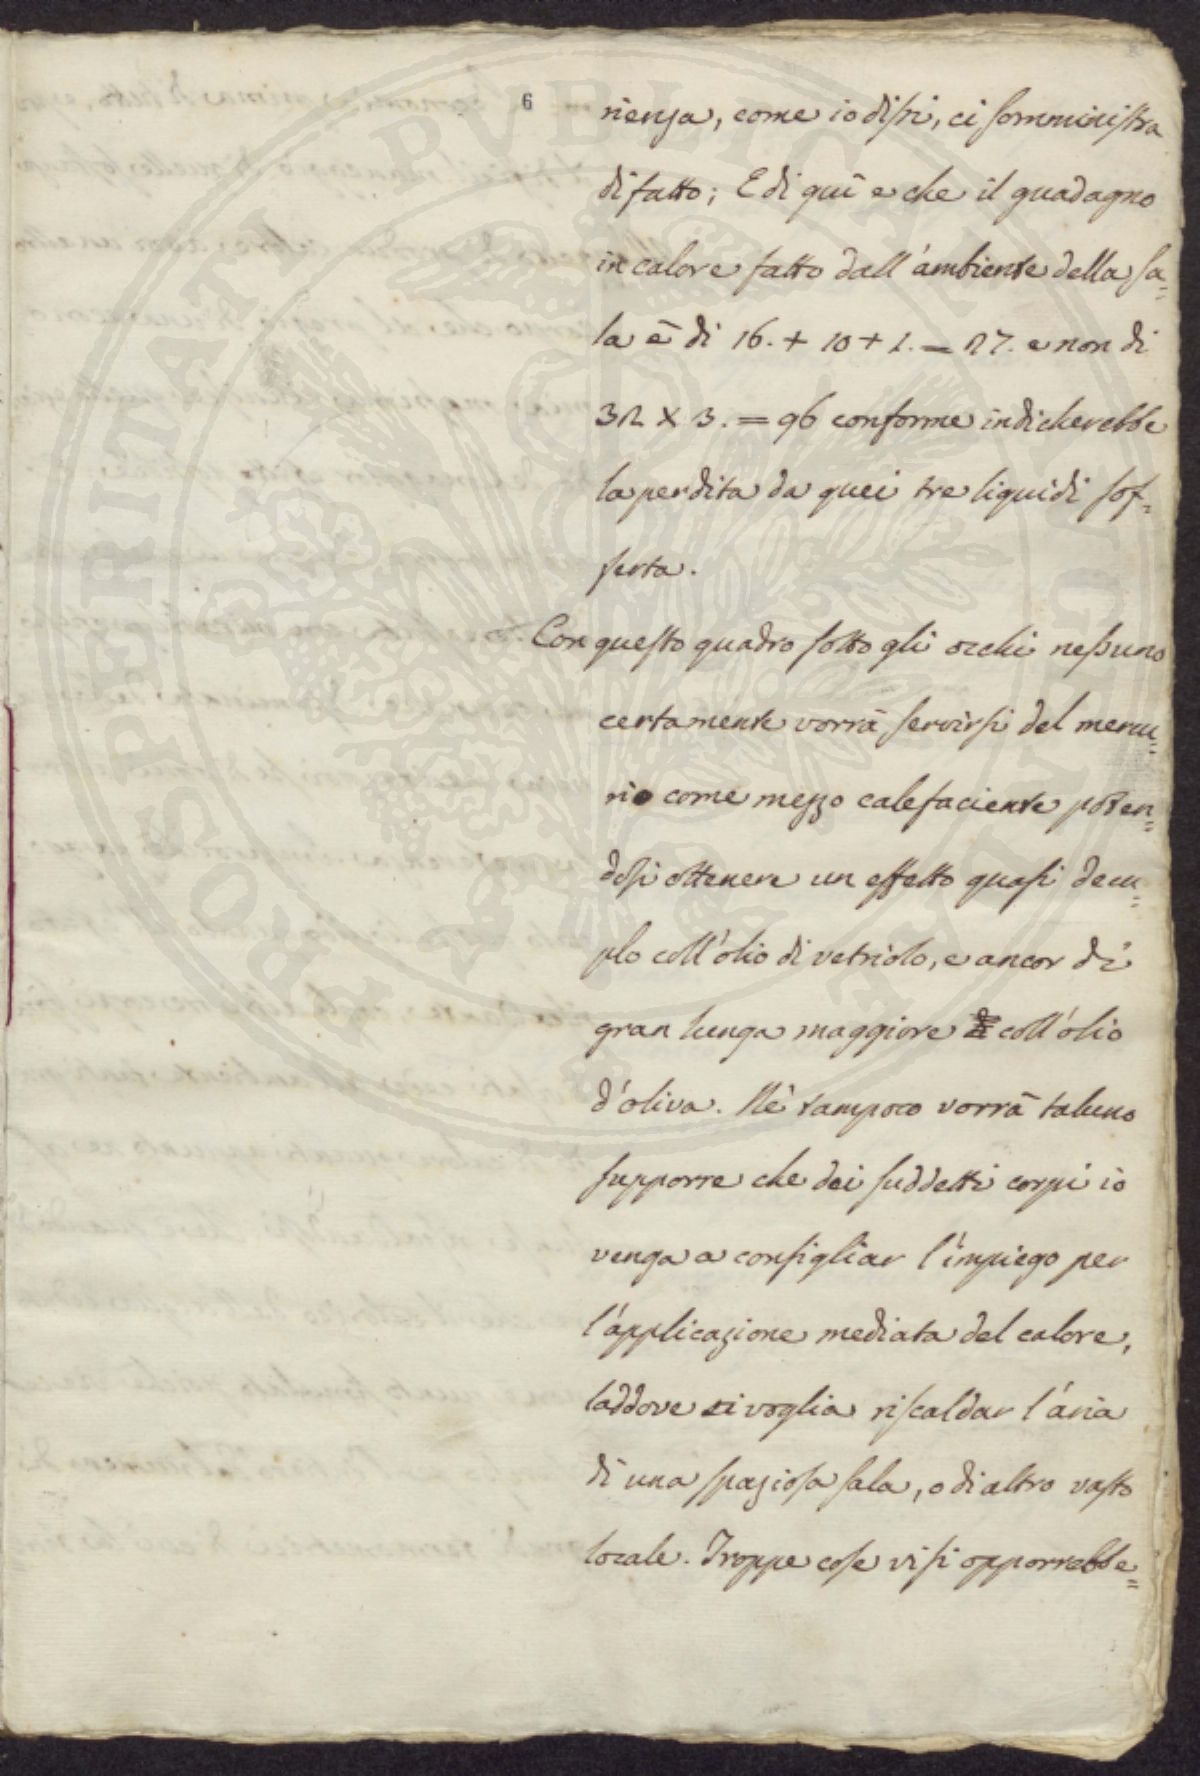 6
rienza, come io dissi, ci somministra
di fatto; E di quì è che il guadagno
in calore fatto dall'ambiente della sa=
la è di 16. + 10 + 1. = 27. e non di
32 x 3. = 96 conforme indicherebbe
la perdita da quei tre liquidi sof=
ferta.
Con questo quadro sotto gli occhi nessuno
certamente vorrà servirsi del mercu=
rio come mezzo calefaciente poten=
dosi ottenere un effetto quasi decu=
plo coll'olio di vetriolo, e ancor di
gran lunga maggiore coll'olio
d'oliva. Nè tampoco vorrà taluno
supporre che dei suddetti corpi io
venga a consigliar l'impiego per
l'applicazione mediata del calore,
laddove si voglia riscaldar l'aria
di una spaziosa sala, o di altro vasto
locale. Troppe cose vi si opporrebbe=
PROSPERITATI PVBLICAE AVGENDAE